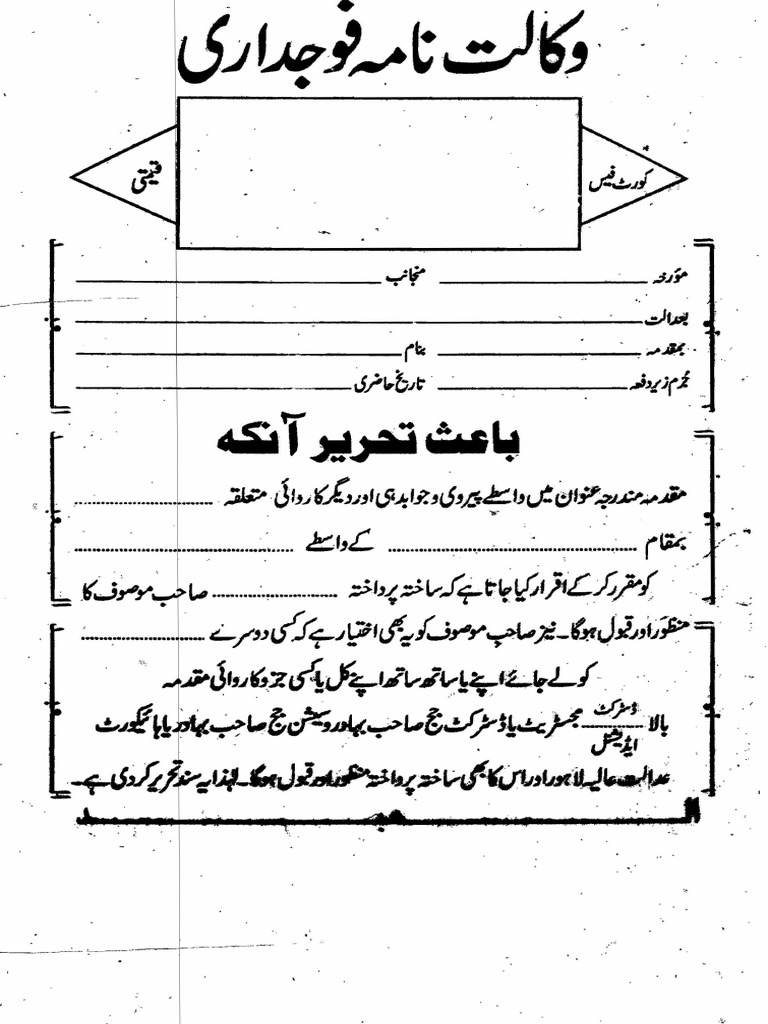 وکالت نامہ فوجداری
کورٹ فیس
قیمتی
مؤرخہ ____________ منجانب ____________
بعدالت ____________
بمقدمہ ____________ بنام ____________
جُرم زیر دفعہ ____________ تاریخ حاضری ____________
باعث تحریر آنکہ
مقدمہ مندرجہ عنوان میں واسطے پیروی و جوابدہی اور دیگر کاروائی متعلقہ ............
بمقام ............ کے واسطے ............
کو مقرر کر کے اقرار کیا جاتا ہے کہ ساختہ پرداختہ ............ صاحب موصوف کا
منظور اور قبول ہوگا۔ نیز صاحبِ موصوف کو یہ بھی اختیار ہے کہ کسی دوسرے ............
کو لے جائے اپنے یا ساتھ ساتھ اپنے کل یا کسی جز و کاروائی مقدمہ
بالا ڈسٹرکٹ مجسٹریٹ یا ڈسٹرکٹ جج صاحب بہادر و سیشن جج صاحب بہادر یا ہائیکورٹ
ایڈیشنل
عدالت عالیہ لاہور اور اس کا بھی ساختہ پرداختہ منظور اور قبول ہوگا۔ لہٰذا یہ سند تحریر کر دی ہے۔